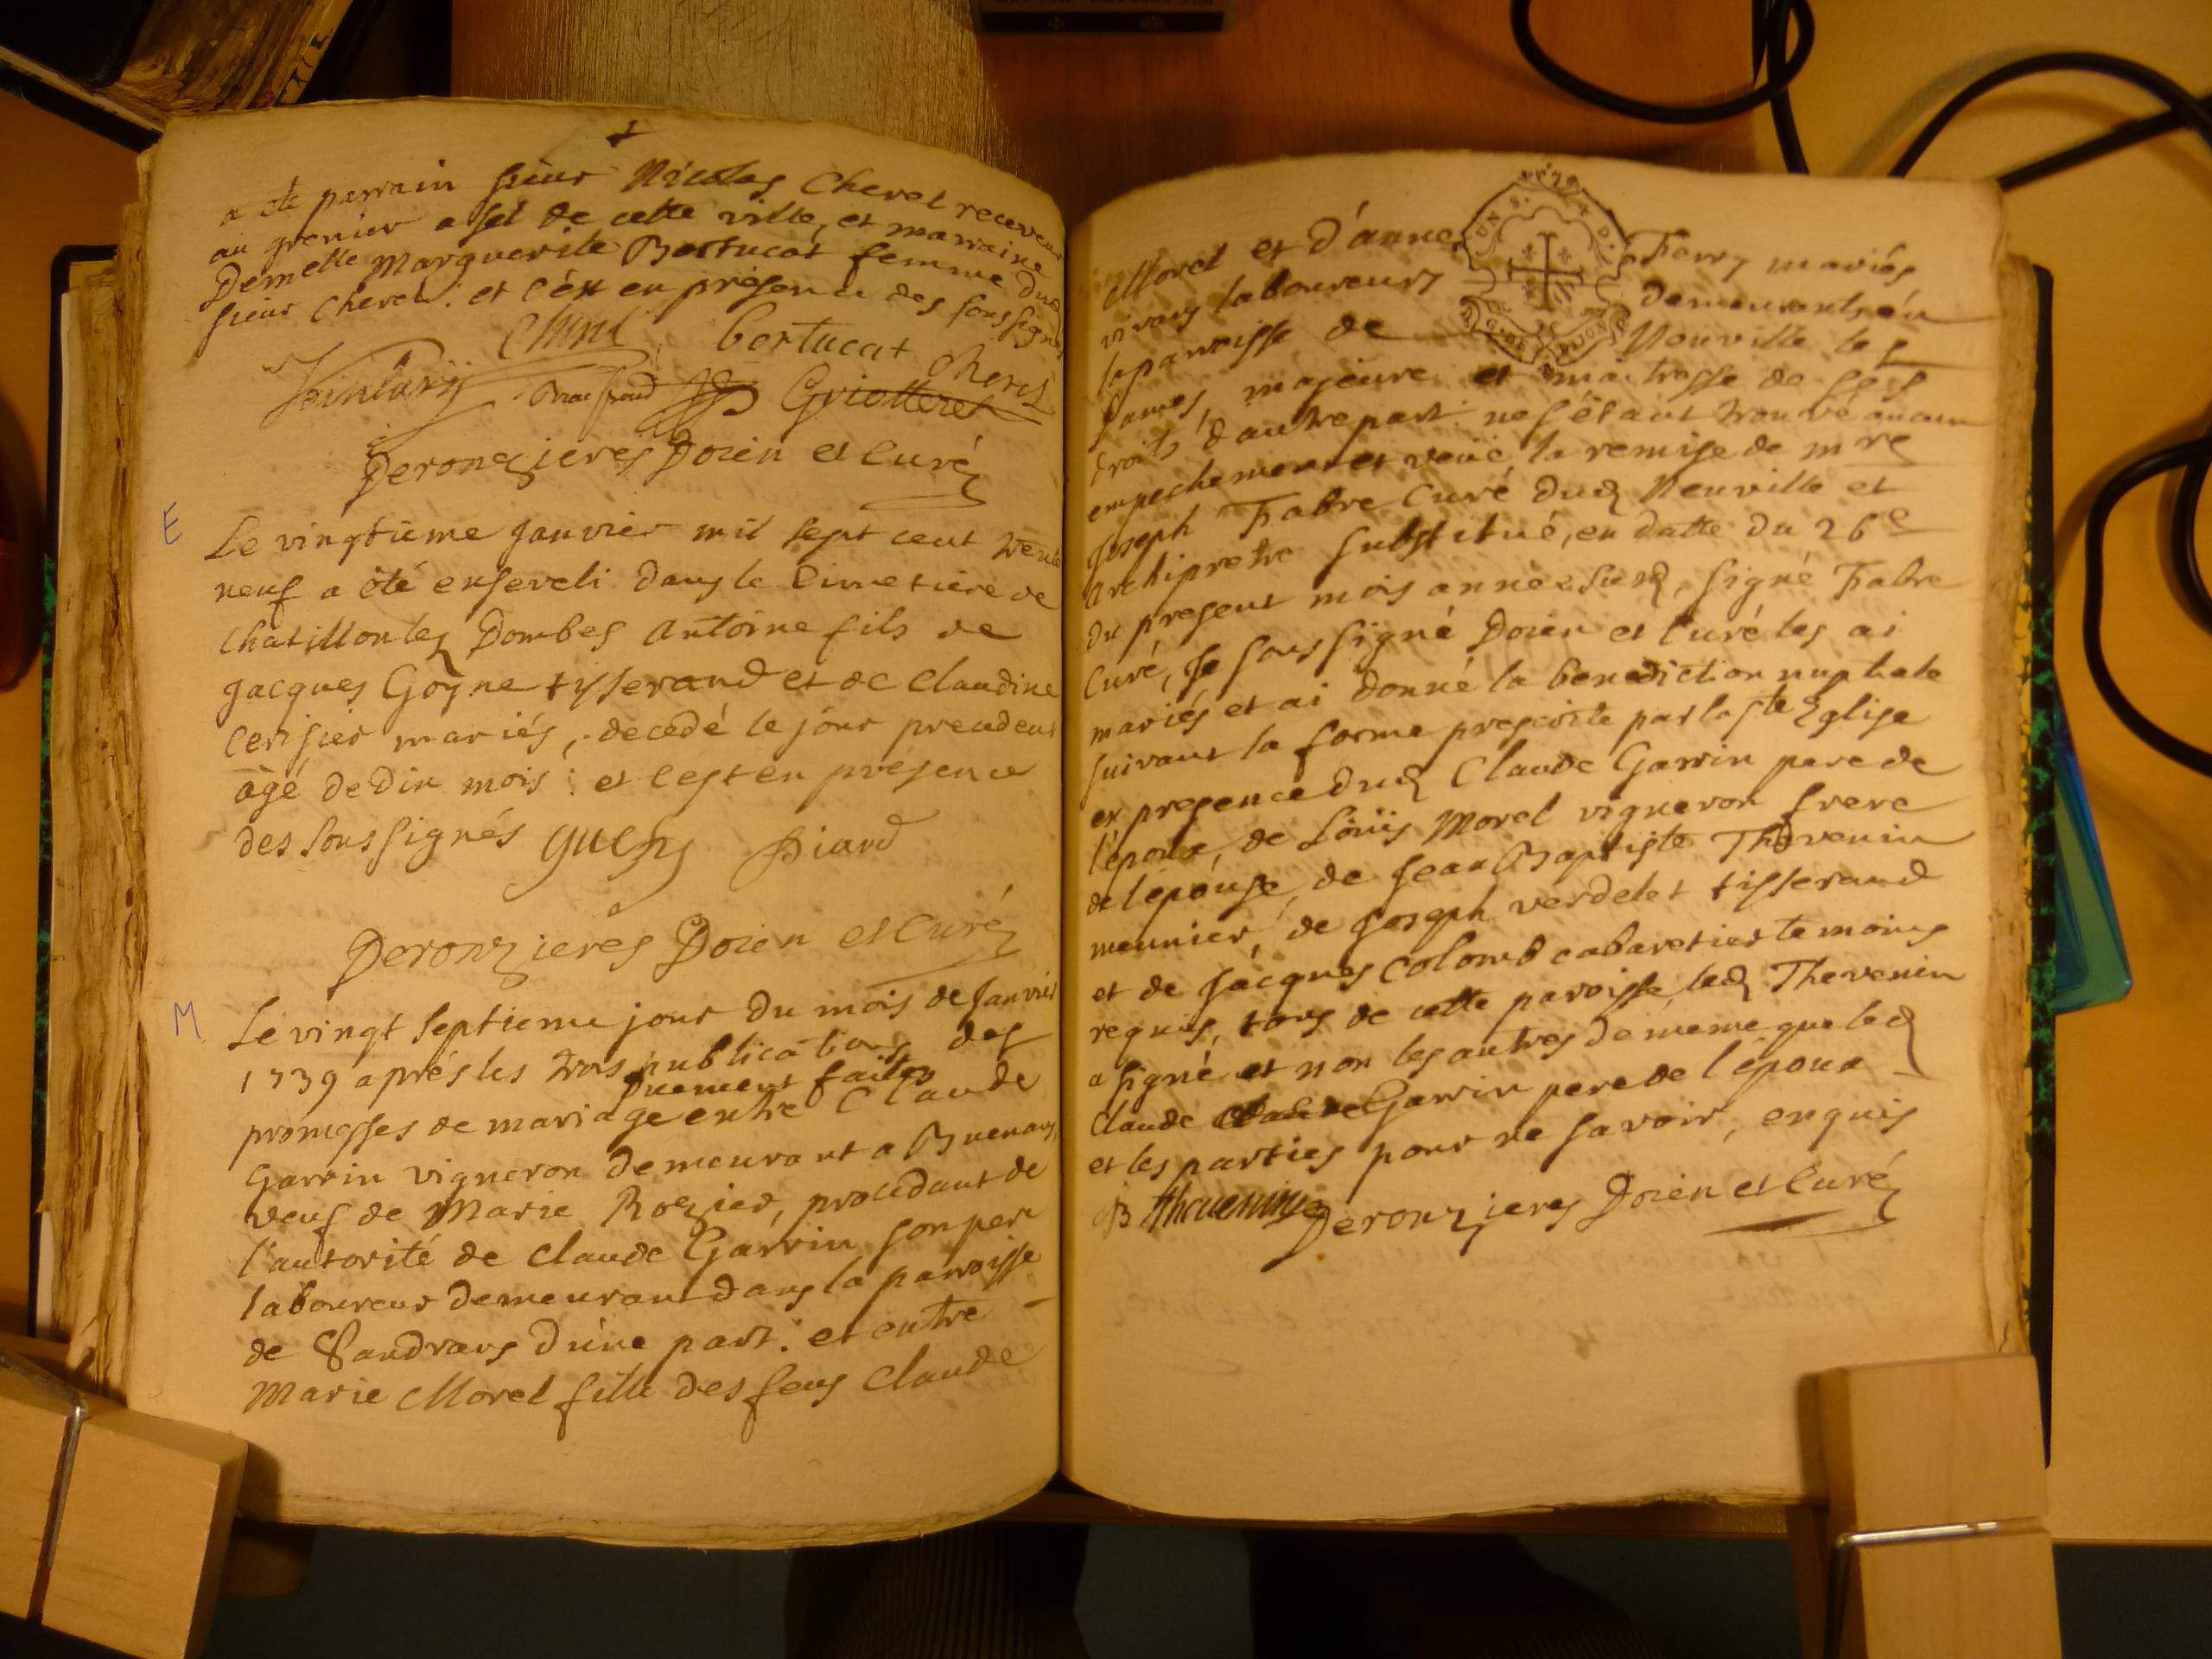 a ete parrain sieur Nicolas Cheret receveur
au grenier a sel de cette ville, et marraine
Demelle Marguerite Bertucat femme dud
sieur Cheret : et c'est en présence des soussignés
bertucat Cheret
Griotteret
Deronzieres Doien et Curé
E
Le vingtième janvier mil sept cent trente
neuf a été enseveli dans le Cimetiere de
Chatillon les Dombes Antoine fils de
Jacques Goyne tisserand et de Claudine
Cerisier mariés, decedé le jour precedent
agé de Dix mois : et c'est en présence
des soussignés Guery Piard
Deronzieres Doien et Curé
M
Le vingt septieme jour du mois de Janvier
1739 aprés les trois publications des
Duement faites
promesses de mariage entre Claude
Garrin vigneron demeurant a Buenans,
veuf de Marie Rozier, procedant de
l'autorité de Claude Garrin son pere
laboureur demeurant dans la parroisse
de Sandrans d'une part : et entre
Marie Morel fille des feus Claude
Morel et d'anne Ferry mariés
vivans laboureurs demeurants en
la parroisse de Neuville les
Dames, majeure et maitresse de ses
droits d'autre part : ne s'étant trouvé aucun
empechement et veüe la remise de mre
Joseph Fabre Curé dud Neuville et
archipretre substitué, en datte du 26e
du present mois année susd, signé Fabre
Curé, Je soussigné Doien et Curé les ai
mariés et ai donné la benediction nuptiale
suivant la forme prescrite par la ste Eglise
en presence dud Claude Garrin pere de
l'époux, de Loüis Morel vigneron frere
de l'épouse, de Jean Baptiste Thevenin
meunier, de Joseph Verdelet tisserand
et de Jacques Colomb cabaretier temoins
requis, tous de cette paroisse, led Thevenin
a signé et non les autres de même que led
Claude Garrin pere de l'époux
et les parties pour ne savoir, enquis
JB thevenin Deronzieres Doien et Curé